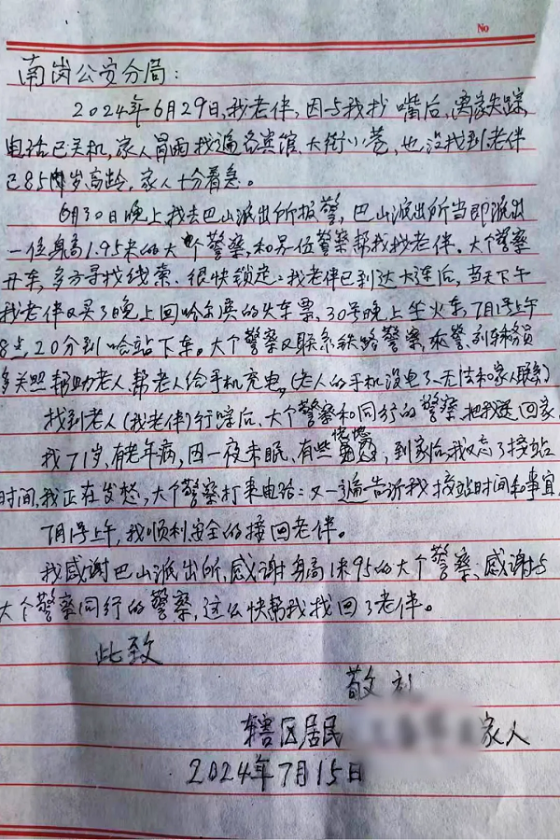 No
南岗公安分局:
2024年6月29日,我老伴,因与我拌嘴后,离家失踪,
电话已关机,家人冒雨找遍各宾馆、大街小巷,也没找到老伴
已85岁高龄,家人十分着急。
6月30日晚上我去巴山派出所报警,巴山派出所当即派出
一位身高1.95米的大个警察,和另位警察帮我找老伴。大个警察
开车,多方寻找线索、很快锁定:我老伴已到达大连后,当天下午
我老伴又买了晚上回哈尔滨的火车票,30号晚上午火车,7月1号上午
8点20分到哈站下车。大个警察又联系铁路警察、乘警、列车员
多关照帮助老人,帮老人给手机充电,(老人的手机没电了、无法和家人联系)
找到老人(我老伴)行踪后、大个警察和同行的警察,把我送回家,
我71岁、有老年病,因一夜未眠、有些恍惚,到家后,我又忘了接站
时间,我正在发愁,大个警察打来电话:又一遍告诉我接站时间和事宜
7月1号上午,我顺利安全的接回老伴。
我感谢巴山派出所,感谢身高1米95的大个警察、感谢与
大个警察同行的警察,这么快帮我找回了老伴。
此致
敬礼
辖区居民 家人
2024年7月15日